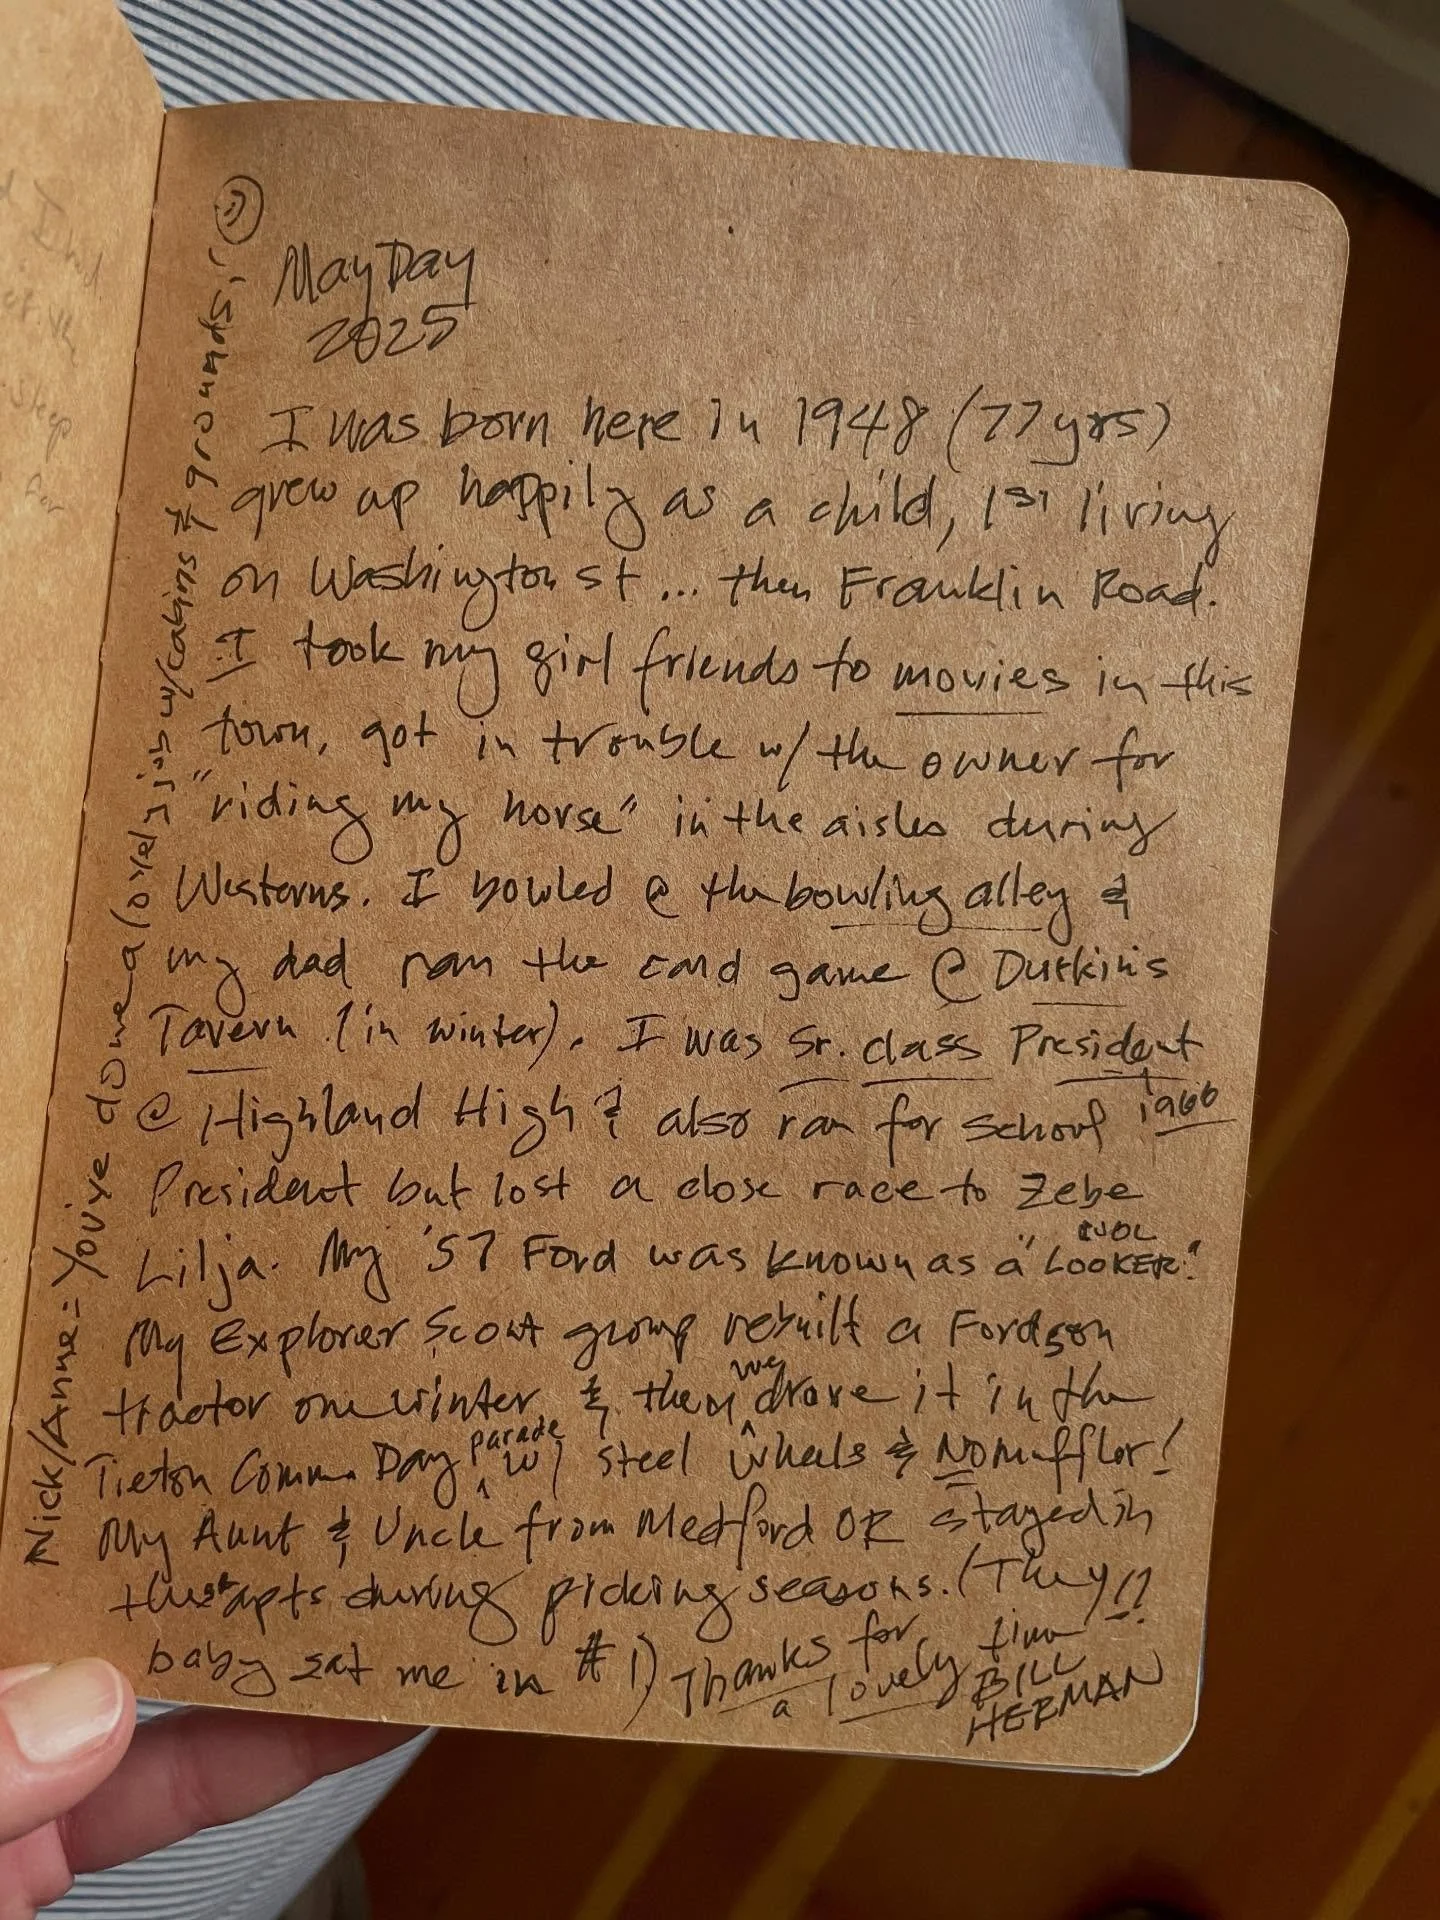 May Day
2025
I was born here in 1948 (77 yrs)
grew up happily as a child, 1st living
on Washington St... then Franklin Road.
I took my girl friends to movies in this
town, got in trouble w/ the owner for
"riding my horse" in the aisles during
Westerns. I bowled @ the bowling alley &
my dad ran the card game @ Durkin's
Tavern (in winter). I was Sr. class President
1966
@ Highland High & also ran for School
President but lost a close race to Zebe
Lilja. My '57 Ford was known as a "COOL LOOKER."
My Explorer Scout group rebuilt a Fordson
tractor one winter & then we drove it in the
Tieton Comm. Day parade w/ steel wheels & No muffler!
My Aunt & Uncle from Medford OR stayed in
these apts during picking seasons. (They
baby sat me in #1) Thanks for
a lovely time!!
BILL
HERMAN
Nick/Anne = You've done a lovely job w/cabins & grounds!